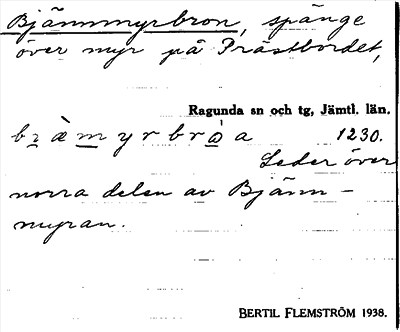 Bjännmyrbron, spänge
över myr på Prästbordet,
Ragunda sn och tg, Jämtl. län.
1230.
Leder över
norra delen av Bjänn-
myran.
BERTIL FLEMSTRÖM 1938.